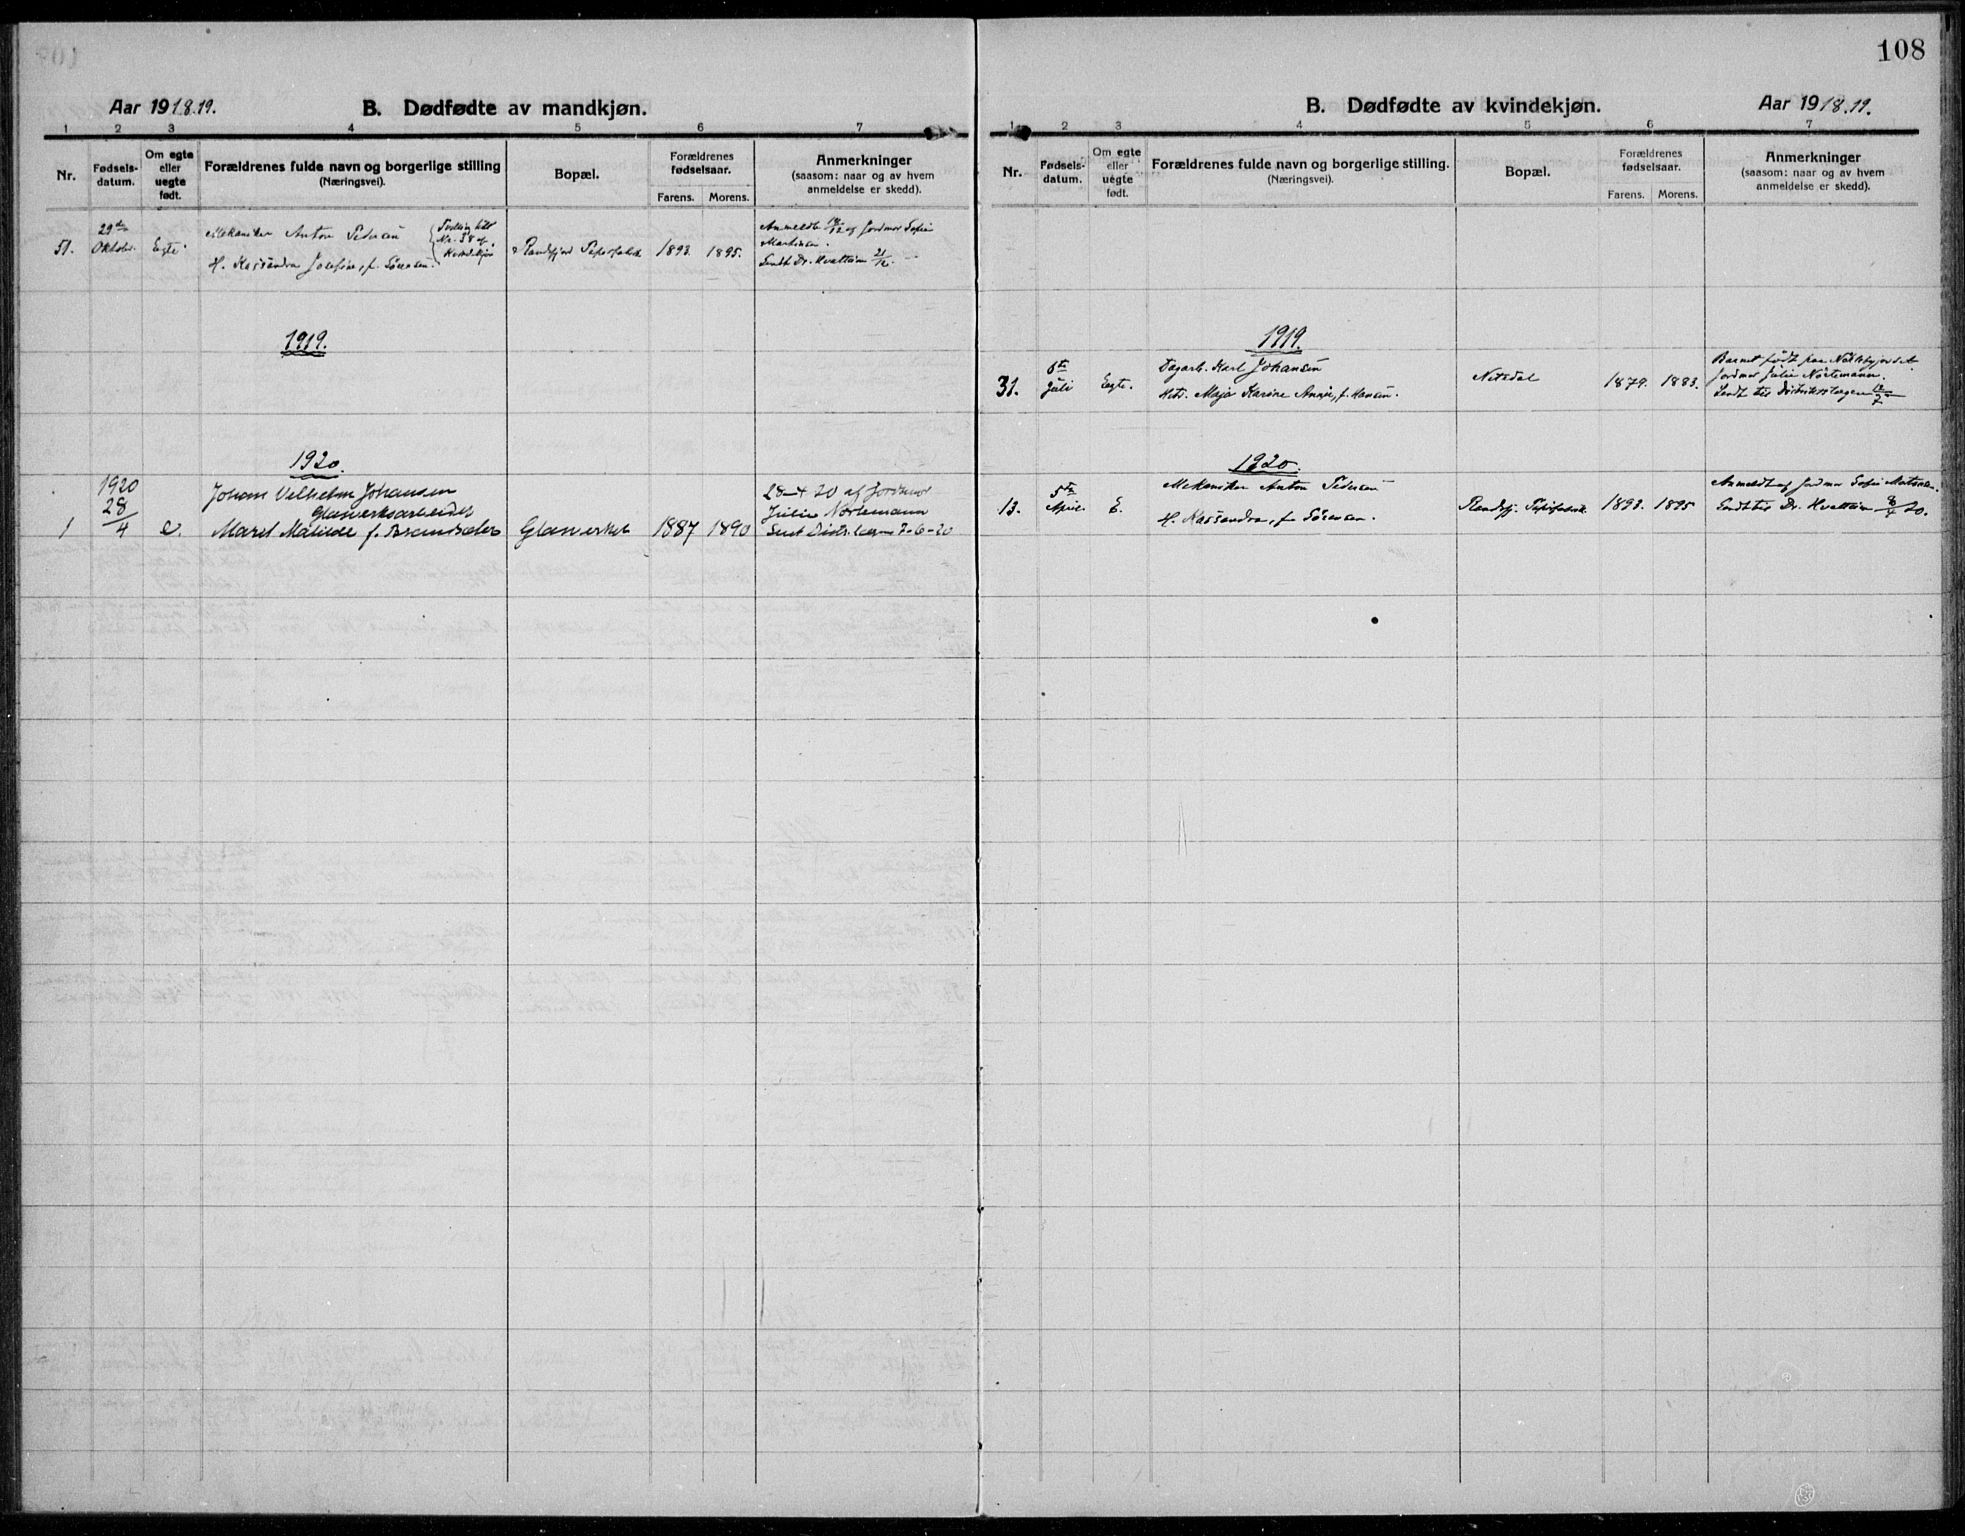 108
Aar 1918.19.
B. Dødfødte av mandkjøn.
1 2 3 4 5 6 7
Nr.
Fødsels-
datum.
Om egte
eller
uegte
født.
Forældrenes fulde navn og borgerlige stilling
(Næringsvei).
Bopæl.
Forældrenes
fødselsaar.
Farens. Morens.
Anmerkninger
(saasom: naar og av hvem
anmeldelse er skedd).
51.
29de
Oktober.
Egte.
Mekaniker Anton Pedersen
H. Kassandra Josefine, f. Sörensen.
Tvilling til
No. 38 af
Kvindekjøn
Randsfjord Papirfabrik
1893. 1895.
Anmeldt 18/12 af Jordmor Sofie
Martinsen.
Sendt Dr. Hvattum 21/12.
1919.
1920.
1
1920
28/4
e.
Johan Vilhelm Johansen
Glasverksarbeider
Maret Matilde f.
Glasverket
1887 1890
28-4 20 af Jordmor
Julie Nørtemann
Sent Distr. 7-6-20
B. Dødfødte av kvindekjøn.
Aar 1918.19.
1 2 3 4 5 6 7
Nr.
Fødsels-
datum.
Om egte
eller
uegte
født.
Forældrenes fulde navn og borgerlige stilling.
(Næringsvei).
Bopæl.
Forældrenes
fødselsaar.
Farens. Morens.
Anmerkninger
(saasom: naar og av hvem
anmeldelse er skedd).
1919.
31.
6te
Juli
Egte.
Dagarb. Karl Johansen
Maja Karine f. Hansen.
1879. 1883.
Barnet født paa
Jordmor Julie Nörtemann.
Sendt til Distriktslægen 12/7
1920.
13.
5te
April
E.
Mekaniker Anton Pedersen
H. Kassandra, f. Sörensen.
Randsfj. Papirfabrik
1893. 1895
Anmeldt af Jordmor Sofie Martinsen.
Sendt til Dr. Hvattum 20.